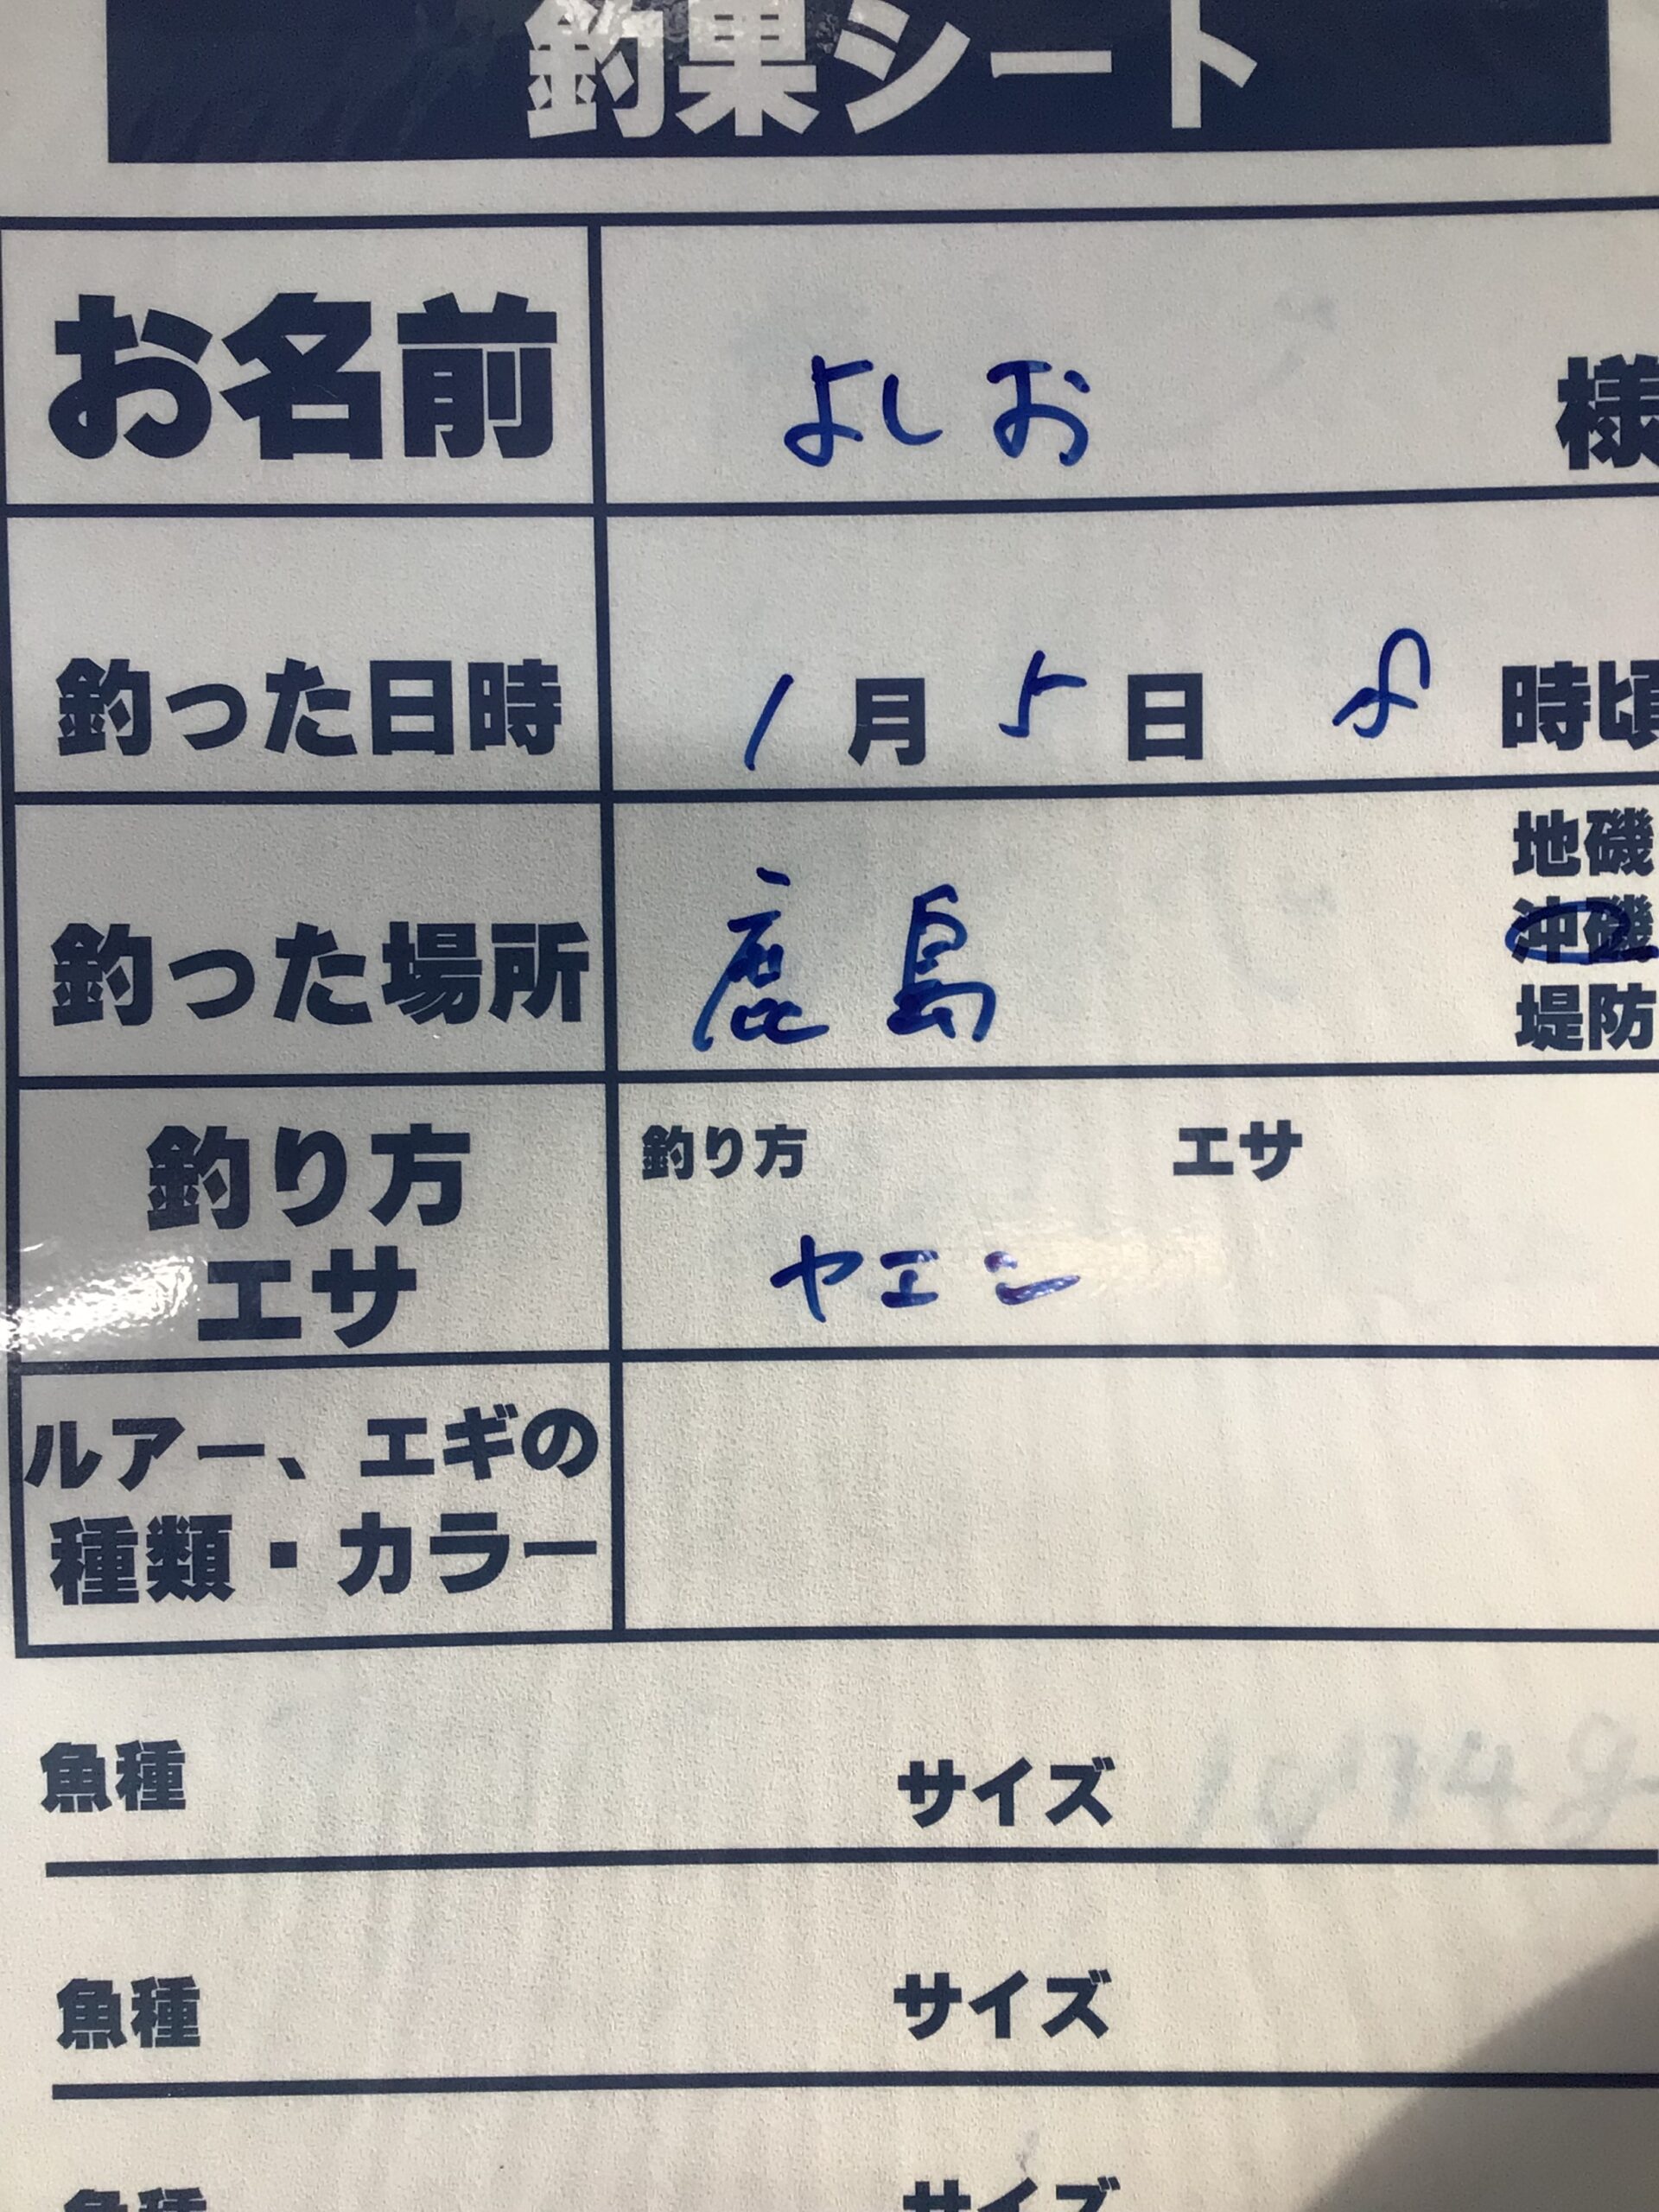 釣果シート
お名前 よしお 様
釣った日時 1月5日 8時頃
地磯
釣った場所 鹿島 沖磯
堤防
釣り方 エサ
釣り方
エサ
ヤエン
ルアー、エギの
種類・カラー
魚種 サイズ
魚種 サイズ
魚種 サイズ